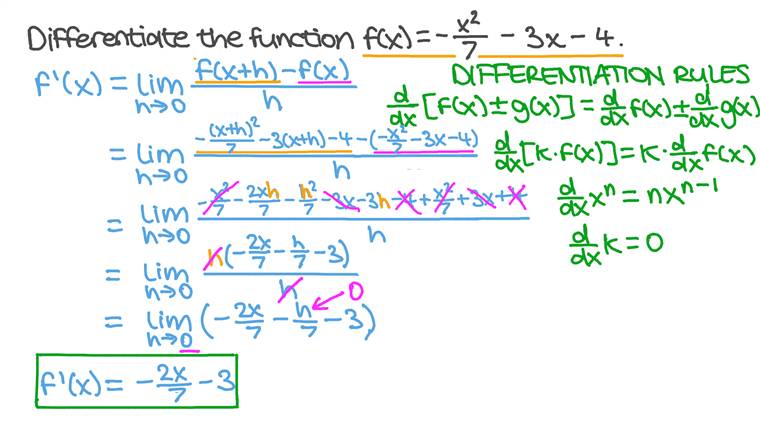 Differentiate the function f(x) = -x²/7 - 3x - 4.
f'(x) = lim h→0 (f(x+h) - f(x))/h
= lim h→0 (-(x+h)²/7 - 3(x+h) - 4 - (-x²/7 - 3x - 4))/h
= lim h→0 (-x²/7 - 2xh/7 - h²/7 - 3x - 3h - 4 + x²/7 + 3x + 4)/h
= lim h→0 h(-2x/7 - h/7 - 3)/h
0
= lim h→0 (-2x/7 - h/7 - 3)
f'(x) = -2x/7 - 3
DIFFERENTIATION RULES
d/dx [f(x) ± g(x)] = d/dx f(x) ± d/dx g(x)
d/dx [k · f(x)] = k · d/dx f(x)
d/dx xⁿ = nxⁿ⁻¹
d/dx k = 0